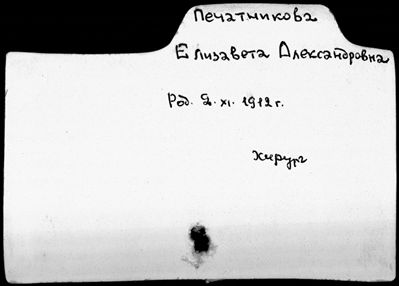 Печатникова
Елизавета Александровна
Род. 2. XI. 1912 г.
хирург